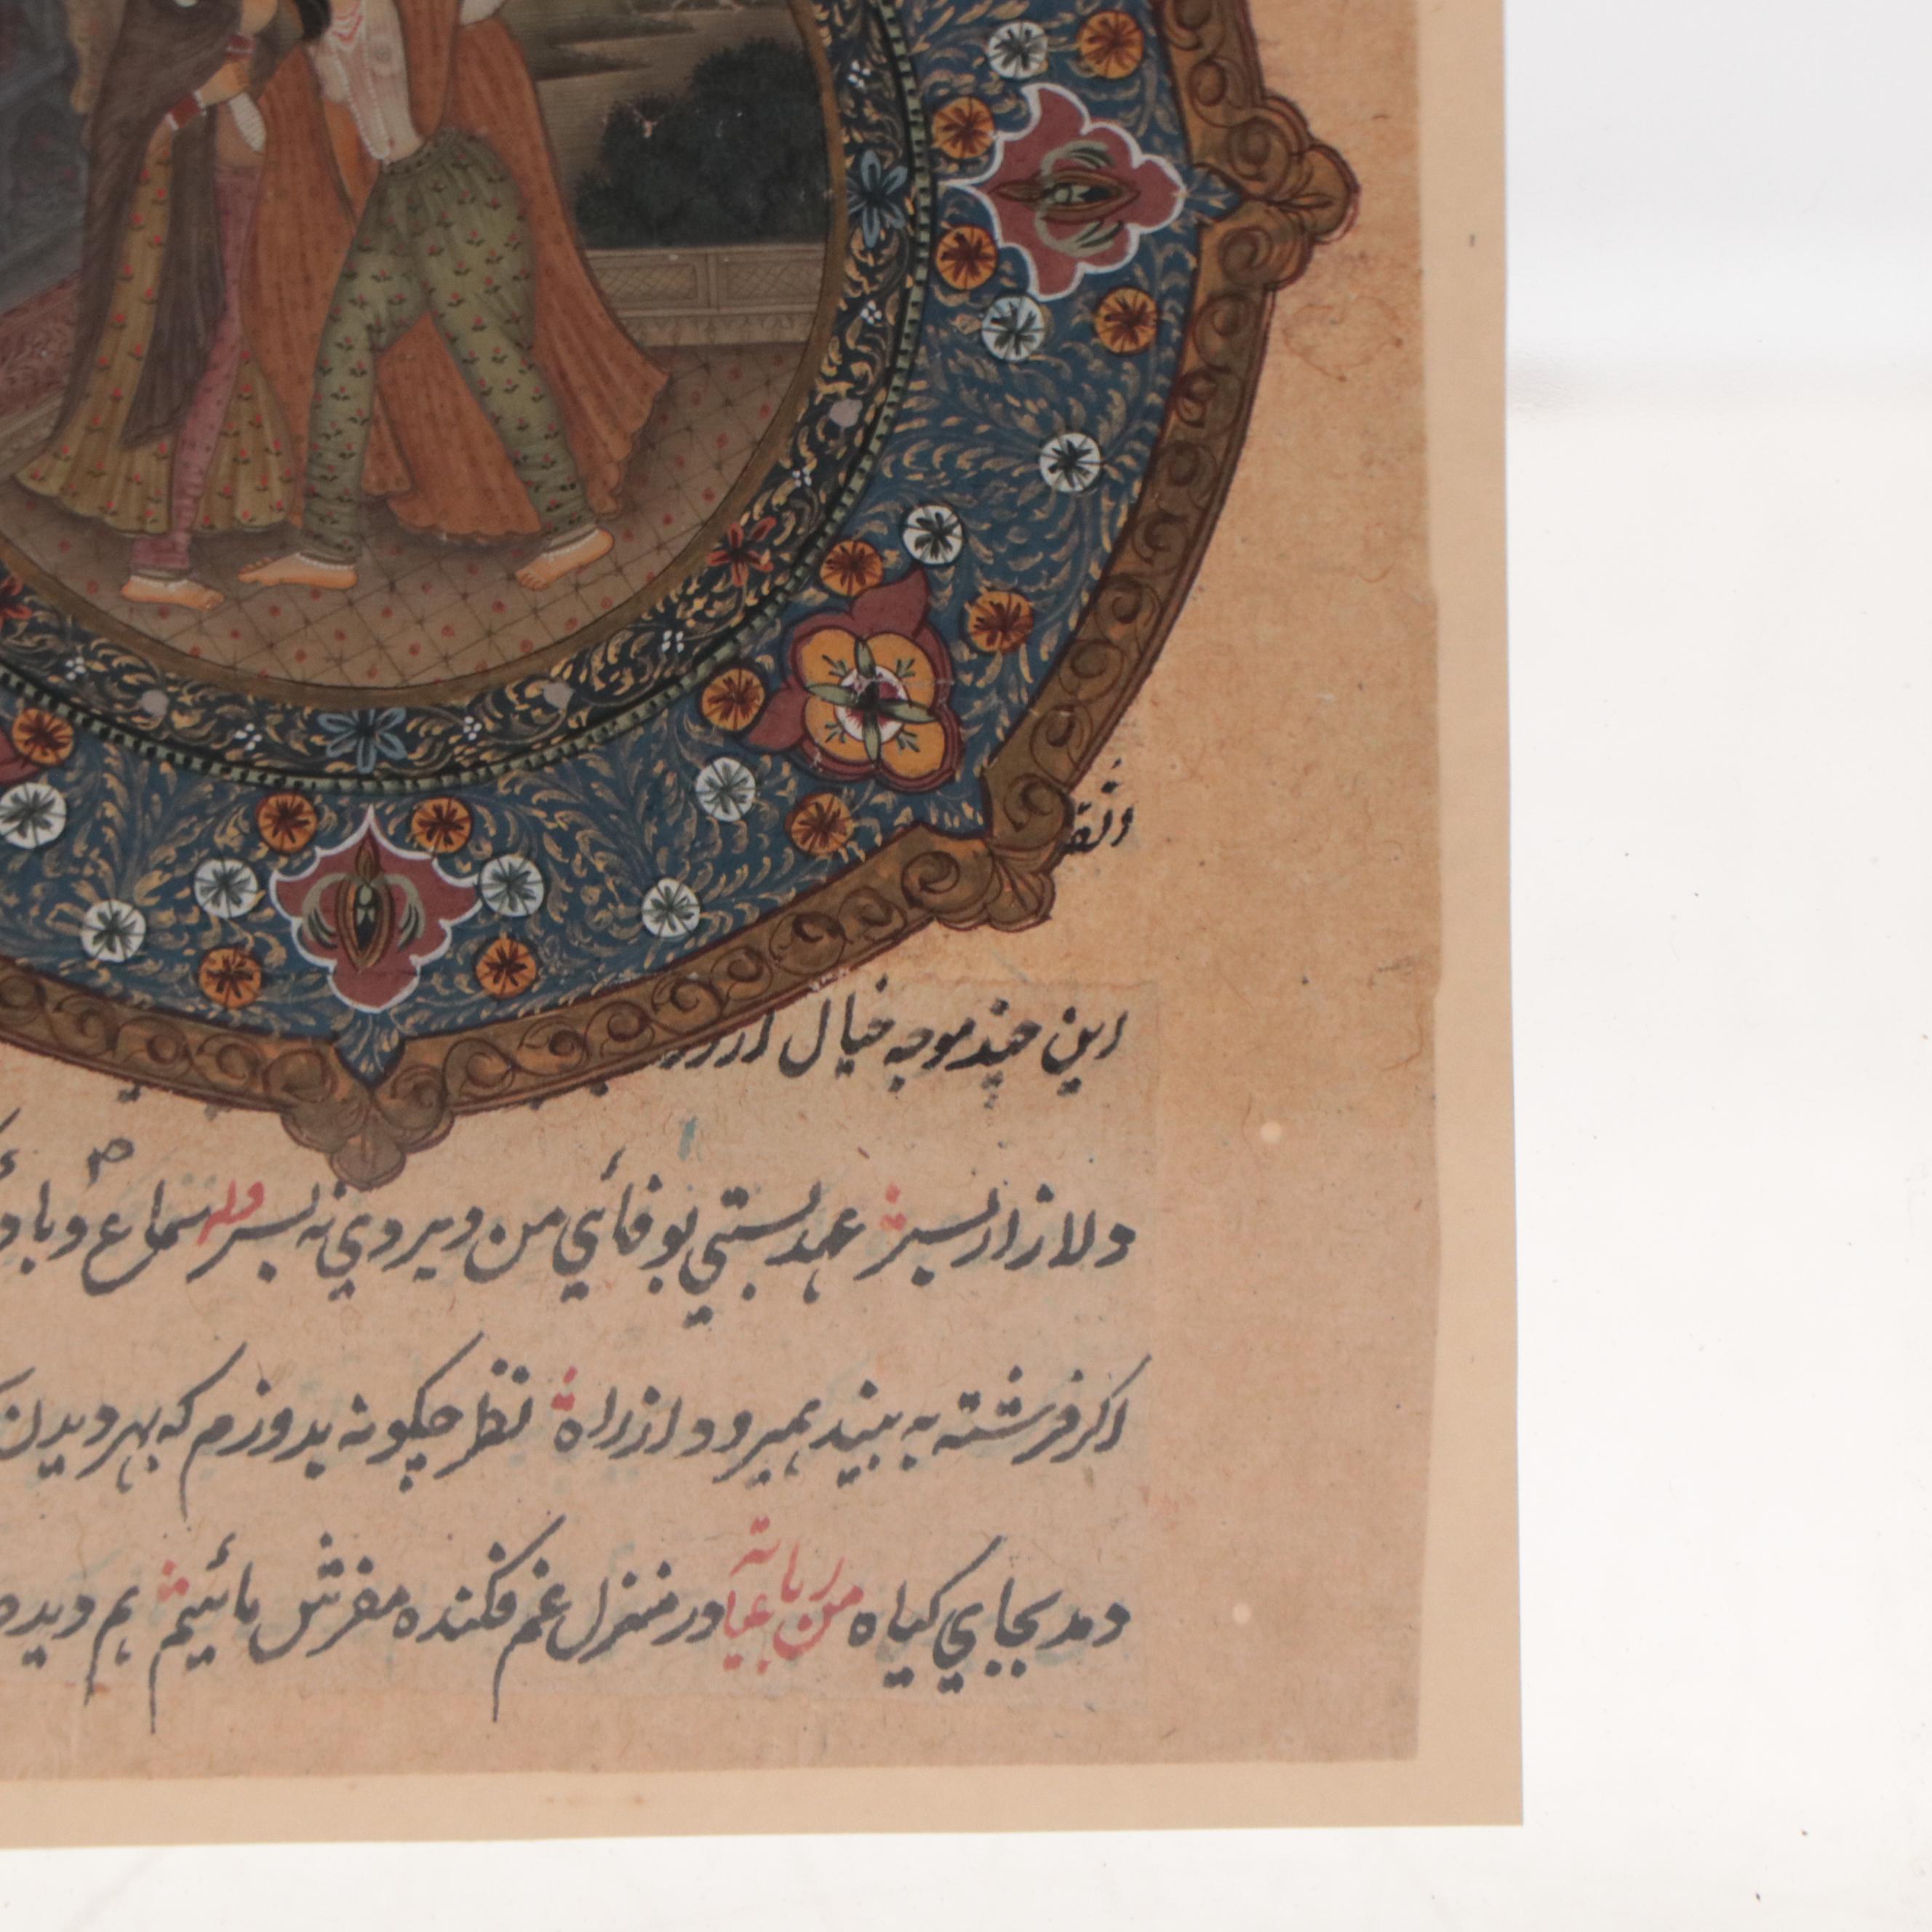 این چند موجه خیال
دلازار بسیر عهد بستی بوفائي من و بر دي نه بسر وله سماع و باد
اکر فرشته به بیند همیرود از راه نظر چکونه بدوزم که بهر دیدن
دمد بجاي کیاه من رباعیاته در منزل غم فکنده مفرش مائیم هم دیده